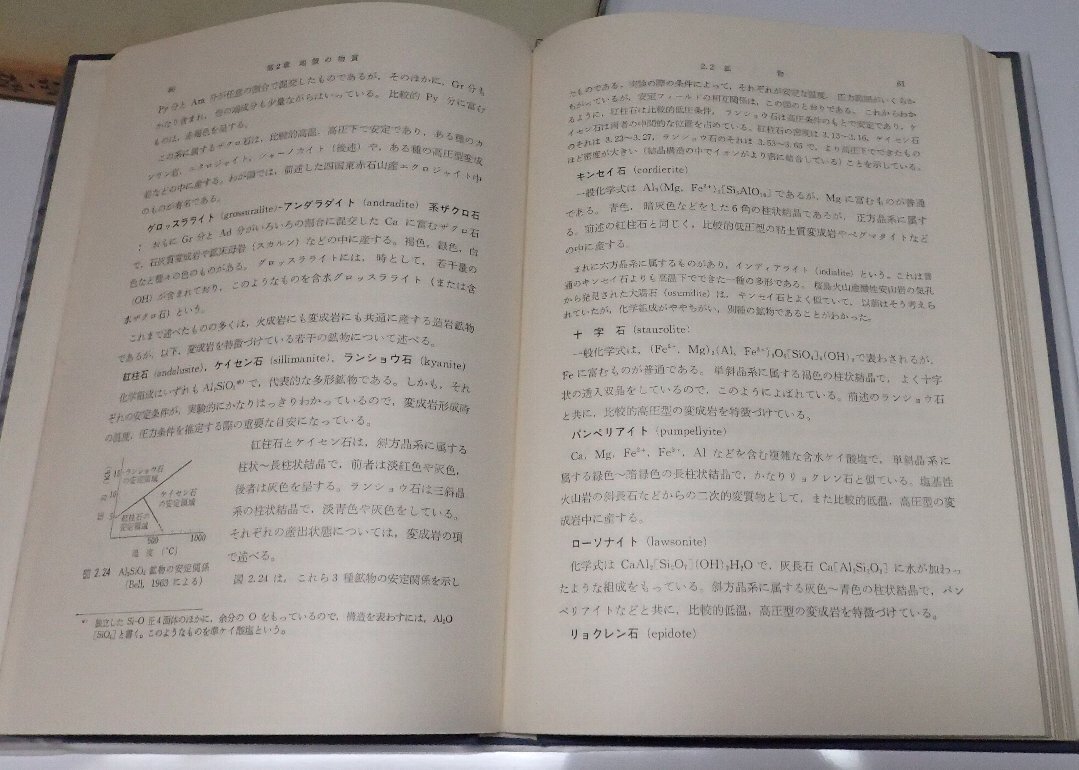 第2章 地殻の物質
Py 分と Am 分が任意の割合で混交したものであるが，そのほかに，Gr 分も
かなり含まれ，他の端成分も少量ながらはいっている。比較的 Py 分に富む
ものは，赤褐色を呈する。
この系に属するザクロ石は，比較的高温，高圧下で安定であり，ある種のカ
ンラン岩，エクロジャイト，シャーノカイト（後述）や，ある種の高圧型変成
岩などの中に産する。わが国では，前述した四国東赤石山産エクロジャイト中
のものが著名である。
グロッスラライト (grossuralite)-アンダラダイト (andradite) 系ザクロ石
： おもに Gr 分と Ad 分がいろいろの割合に混交した Ca に富むザクロ石
で，石灰質変成岩や鉱床母岩（スカルン）などの中に産する。褐色，緑色，白
色など種々の色のものがある。グロッスラライトには，時として，若干量の
(OH) が含まれており，このようなものを含水グロッスラライト（または含
水ザクロ石）という。
これまで述べたものの多くは，火成岩にも変成岩にも共通に産する造岩鉱物
であるが，以下，変成岩を特徴づけている若干の鉱物について述べる。
紅柱石 (andalusite)，ケイセン石 (sillimanite)，ランショウ石 (kyanite)
化学組成はいずれも Al₂SiO₅*⁾ で，代表的な多形鉱物である。しかも，それ
ぞれの安定条件が，実験的にかなりはっきりわかっているので，変成岩形成時
の温度，圧力条件を推定する際の重要な目安になっている。
紅柱石とケイセン石は，斜方晶系に属する
柱状〜長柱状結晶で，前者は淡紅色や灰色，
後者は灰色を呈する。ランショウ石は三斜晶
系の柱状結晶で，淡青色や灰色をしている。
それぞれの産出状態については，変成岩の項
で述べる。
図 2.24 は，これら 3 種鉱物の安定関係を示し
ランショウ石
の安定領域
ケイセン石
の安定領域
紅柱石の
安定領域
500 1000
温 度 (℃)
図 2.24 Al₂SiO₅ 鉱物の安定関係
(Bell, 1963 による)
*⁾ 独立した Si-O 正4面体のほかに，余分の O をもっているので，構造を表わすには，Al₂O
[SiO₄] と書く。このようなものを準ケイ酸塩という。
2.2 鉱 物 61
たものである。実験の際の条件によって，それぞれが安定な温度，圧力範囲がいくらか
ちがっているが，安定フィールドの相互関係は，この図のとおりである。これからわか
るように，紅柱石は比較的低圧条件，ランショウ石は高圧条件のもとで安定であり，ケ
イセン石は両者の中間的な位置を占めている。紅柱石の密度は 3.13〜3.16，ケイセン石
のそれは 3.23〜3.27，ランショウ石のそれは 3.53〜3.65 で，より高圧下でできたもの
ほど密度が大きい（結晶構造の中でイオンがより密に結合している）ことを示している。
キンセイ石 (cordierite)
一般化学式は Al₃(Mg, Fe²⁺)₂[Si₅AlO₁₈] であるが，Mg に富むものが普通
である。青色，暗灰色などをした 6 角の柱状結晶であるが，正方晶系に属す
る。前述の紅柱石と同じく，比較的低圧型の粘土質変成岩やペグマタイトなど
の中に産する。
まれに六方晶系に属するものがあり，インディアライト (indialite) という。これは普
通のキンセイ石よりも高温下でできた一種の多形である。桜島火山産酸性安山岩の気孔
から発見された大隅石 (osemidite) は，キンセイ石とよく似ていて，以前はそう考えら
れていたが，化学組成がややちがい，別種の鉱物であることがわかった。
十 字 石 (staurolite)
一般化学式は，(Fe²⁺, Mg)₂(Al, Fe³⁺)₉O₆[SiO₄]₄(OH)₂で表わされるが，
Fe に富むものが普通である。単斜晶系に属する褐色の柱状結晶で，よく十字
状の透入双晶をしているので，このようによばれている。前述のランショウ石
と共に，比較的高圧型の変成岩を特徴づけている。
パンペリアイト (pumpellyite)
Ca，Mg，Fe²⁺，Fe³⁺，Al などを含む複雑な含水ケイ酸塩で，単斜晶系に
属する緑色〜暗緑色の長柱状結晶で，かなりリョクレン石と似ている。塩基性
火山岩の斜長石などからの二次的変質物として，また比較的低温，高圧型の変
成岩中に産する。
ローソナイト (lawsonite)
化学式は CaAl₂[Si₂O₇](OH)₂H₂O で，灰長石 Ca[Al₂Si₂O₈] に水が加わっ
たような組成をもっている。斜方晶系に属する灰色〜青色の柱状結晶で，パン
ペリアイトなどと共に，比較的低温，高圧型の変成岩を特徴づけている。
リョクレン石 (epidote)